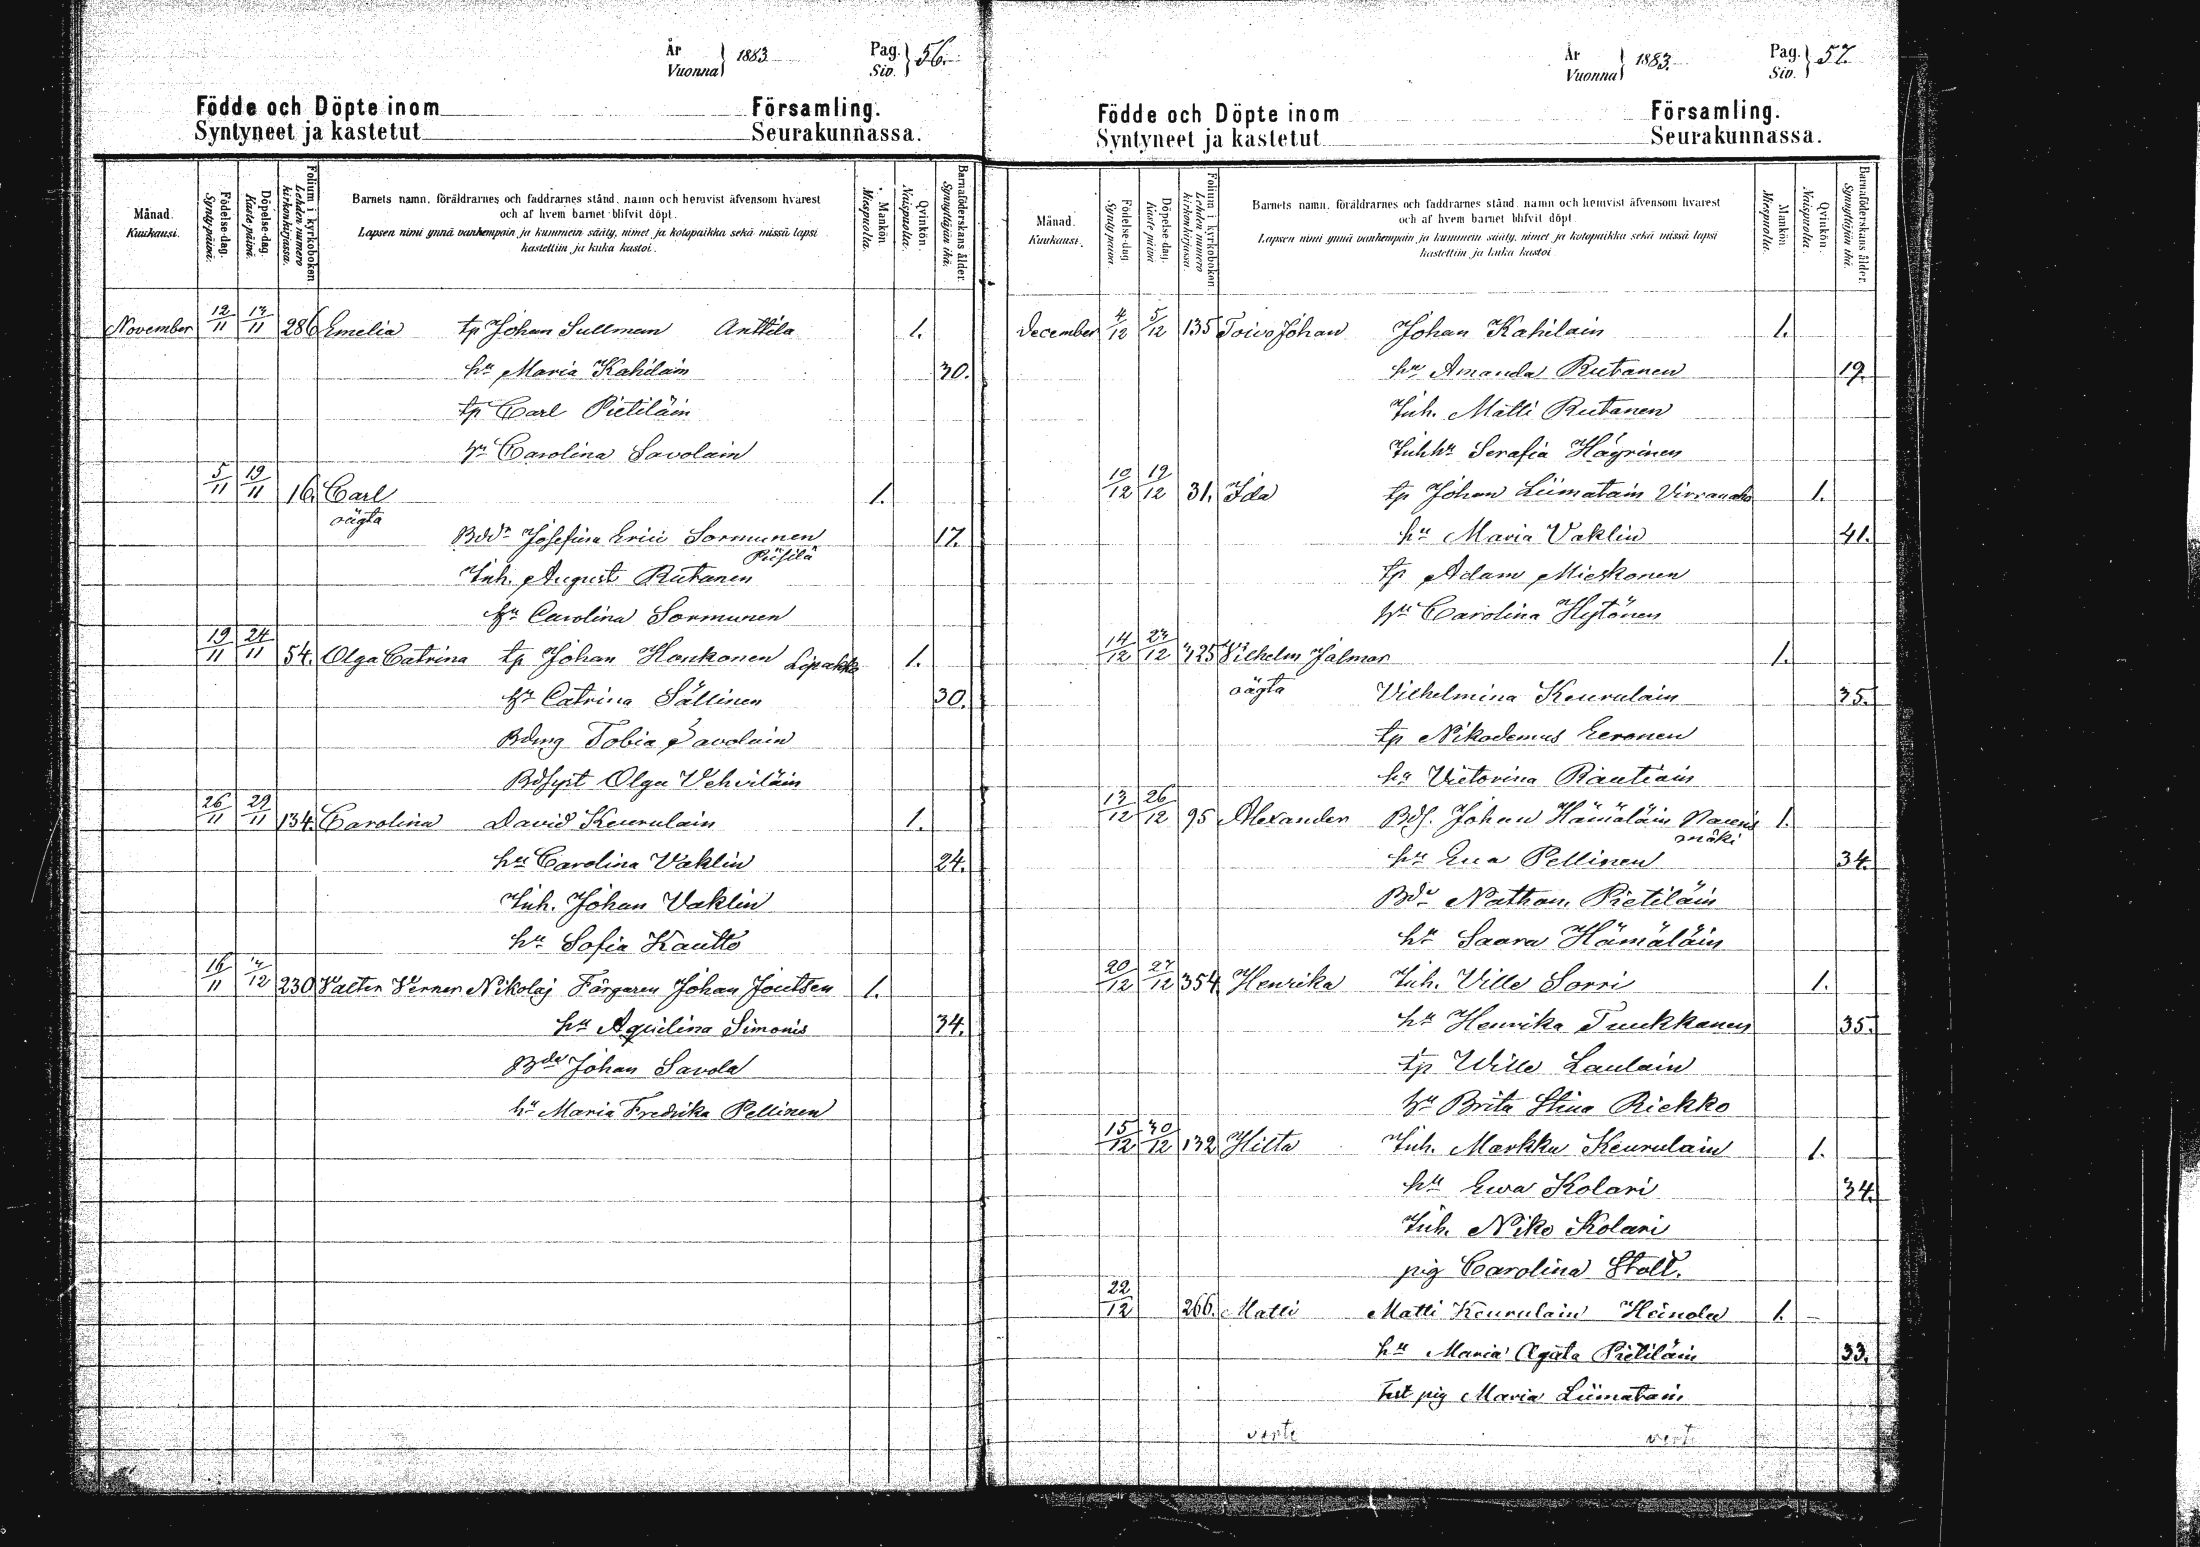 År
Vuonna } 1883
Pag.
Siv. } 56.
Födde och Döpte inom Församling.
Syntyneet ja kastetut Seurakunnassa.
Månad. Kuukausi.
Födelse-dag. Syntypäivä.
Döpelse-dag. Kastepäivä.
Folium i kyrkoboken Lehden numero kirkonkirjassa.
Barnets namn, föräldrarnes och faddrarnes stånd, namn och hemvist äfvensom hvarest
och af hvem barnet blifvit döpt.
Lapsen nimi ynnä vanhempain ja kummein sääty, nimet ja kotopaikka sekä missä lapsi
kastettiin ja kuka kastoi.
Mankön. Miespuolia.
Qvinkön. Naispuolia.
Barnaföderskans ålder. Synnyttäjän ikä.
November 12/11 17/11 286 Emelia tp Johan Sullman Anttila 1.
hu Maria Kahilain 30.
tp Carl Pietiläin
hu Carolina Savolain
5/11 19/11 16. Carl 1.
oägta
Bddr Josefina Erici Sormunen 17.
Inh. August Rutanen
hu Carolina Sormunen
19/11 24/11 54. Olga Catrina tp Johan Honkonen 1.
hu Catrina Sällinen 30.
Bdmg Tobia Savolain
Olga Vehviläin
26/11 29/11 134. Carolina David Keurulain 1.
hu Carolina Vaklin 24.
Inh. Johan Vaklin
hu Sofia Kautto
16/11 230 Valter Verner Nikolaj Färgaren Johan Joutsen 1.
hu Aquilina Simonis 34.
Bde Johan Savola
hu Maria Fredrika Pellinen
År
Vuonna } 1883.
Pag.
Siv. } 57.
Födde och Döpte inom Församling.
Syntyneet ja kastetut Seurakunnassa.
Månad. Kuukausi.
Födelse-dag. Syntypäivä.
Döpelse-dag. Kastepäivä.
Folium i kyrkoboken Lehden numero kirkonkirjassa.
Barnets namn, föräldrarnes och faddrarnes stånd, namn och hemvist äfvensom hvarest
och af hvem barnet blifvit döpt.
Lapsen nimi ynnä vanhempain ja kummein sääty, nimet ja kotopaikka sekä missä lapsi
kastettiin ja kuka kastoi.
Mankön. Miespuolia.
Qvinkön. Naispuolia.
Barnaföderskans ålder. Synnyttäjän ikä.
December 4/12 5/12 135 Toivo Johan Johan Kahilain 1.
hu Amanda Rutanen 19.
Inh. Matti Rutanen
Inhhu Serafia Häyrinen
10/12 19/12 31. Ida tp Johan Liimatain 1.
hu Maria Vaklin 41.
tp Adam Mieskonen
hu Carolina Hytönen
14/12 23/12 425 Vilhelm Jalmar 1.
oägta Vilhelmina Keurulain 35.
tp Nikodemus Eeronen
hu Victorina Rautiain
13/12 26/12 95 Alexander Bdf. Johan Hämäläin Nauris 1.
mäki
hu Eva Pellinen 34.
Bde Nathan. Pietiläin
hu Saara Hämäläin
20/12 27/12 354 Henrika Inh. Ville Sorri 1.
hu Henrika Tuukkanen 35.
tp Wille Laulain
hu Brita Stina Riekko
15/12 30/12 132 Hilta Inh. Markku Keurulain 1.
hu Ewa Kolari 34.
Inh. Niko Kolari
pig Carolina Stolt.
22/12 266. Matti Matti Keurulain Heinola 1.
hu Maria Agata Pietiläin 33.
Test pig Maria Liimatain
verte vert